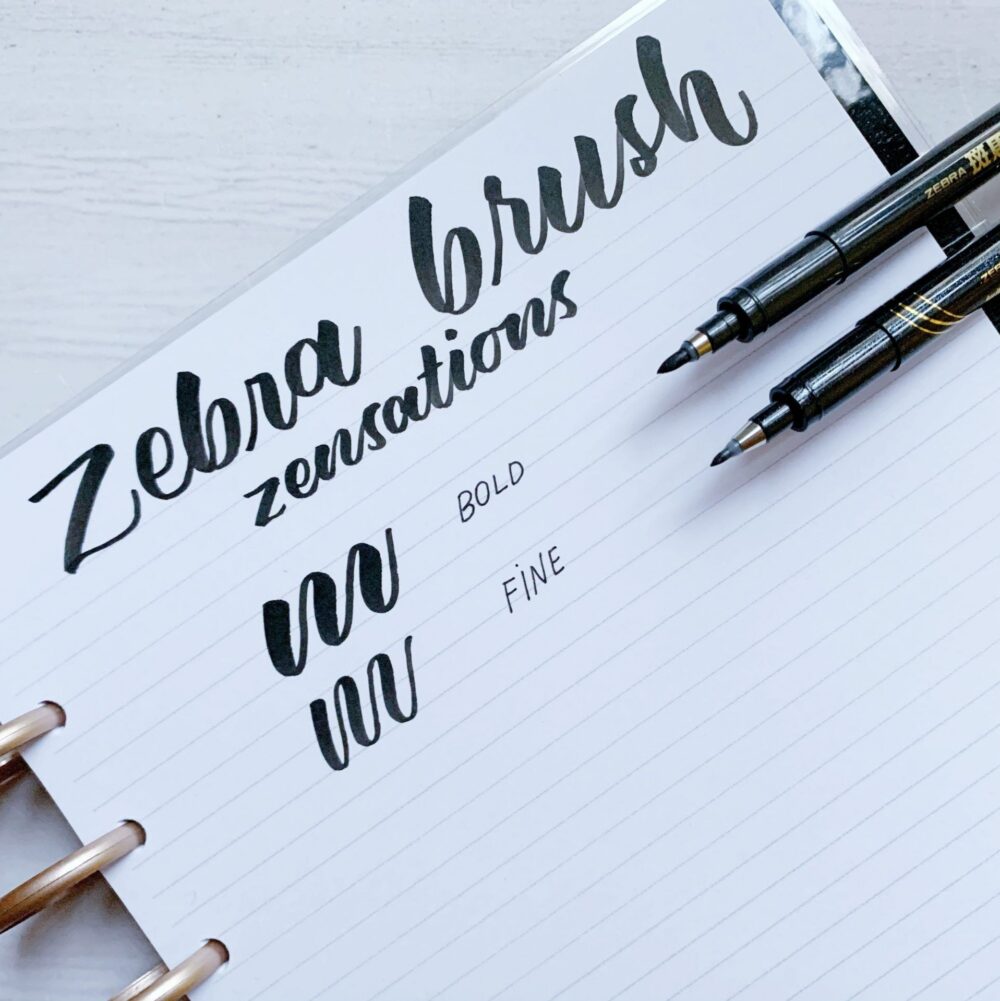 Zebra brush
zensations
BOLD
FINE
ZEBRA